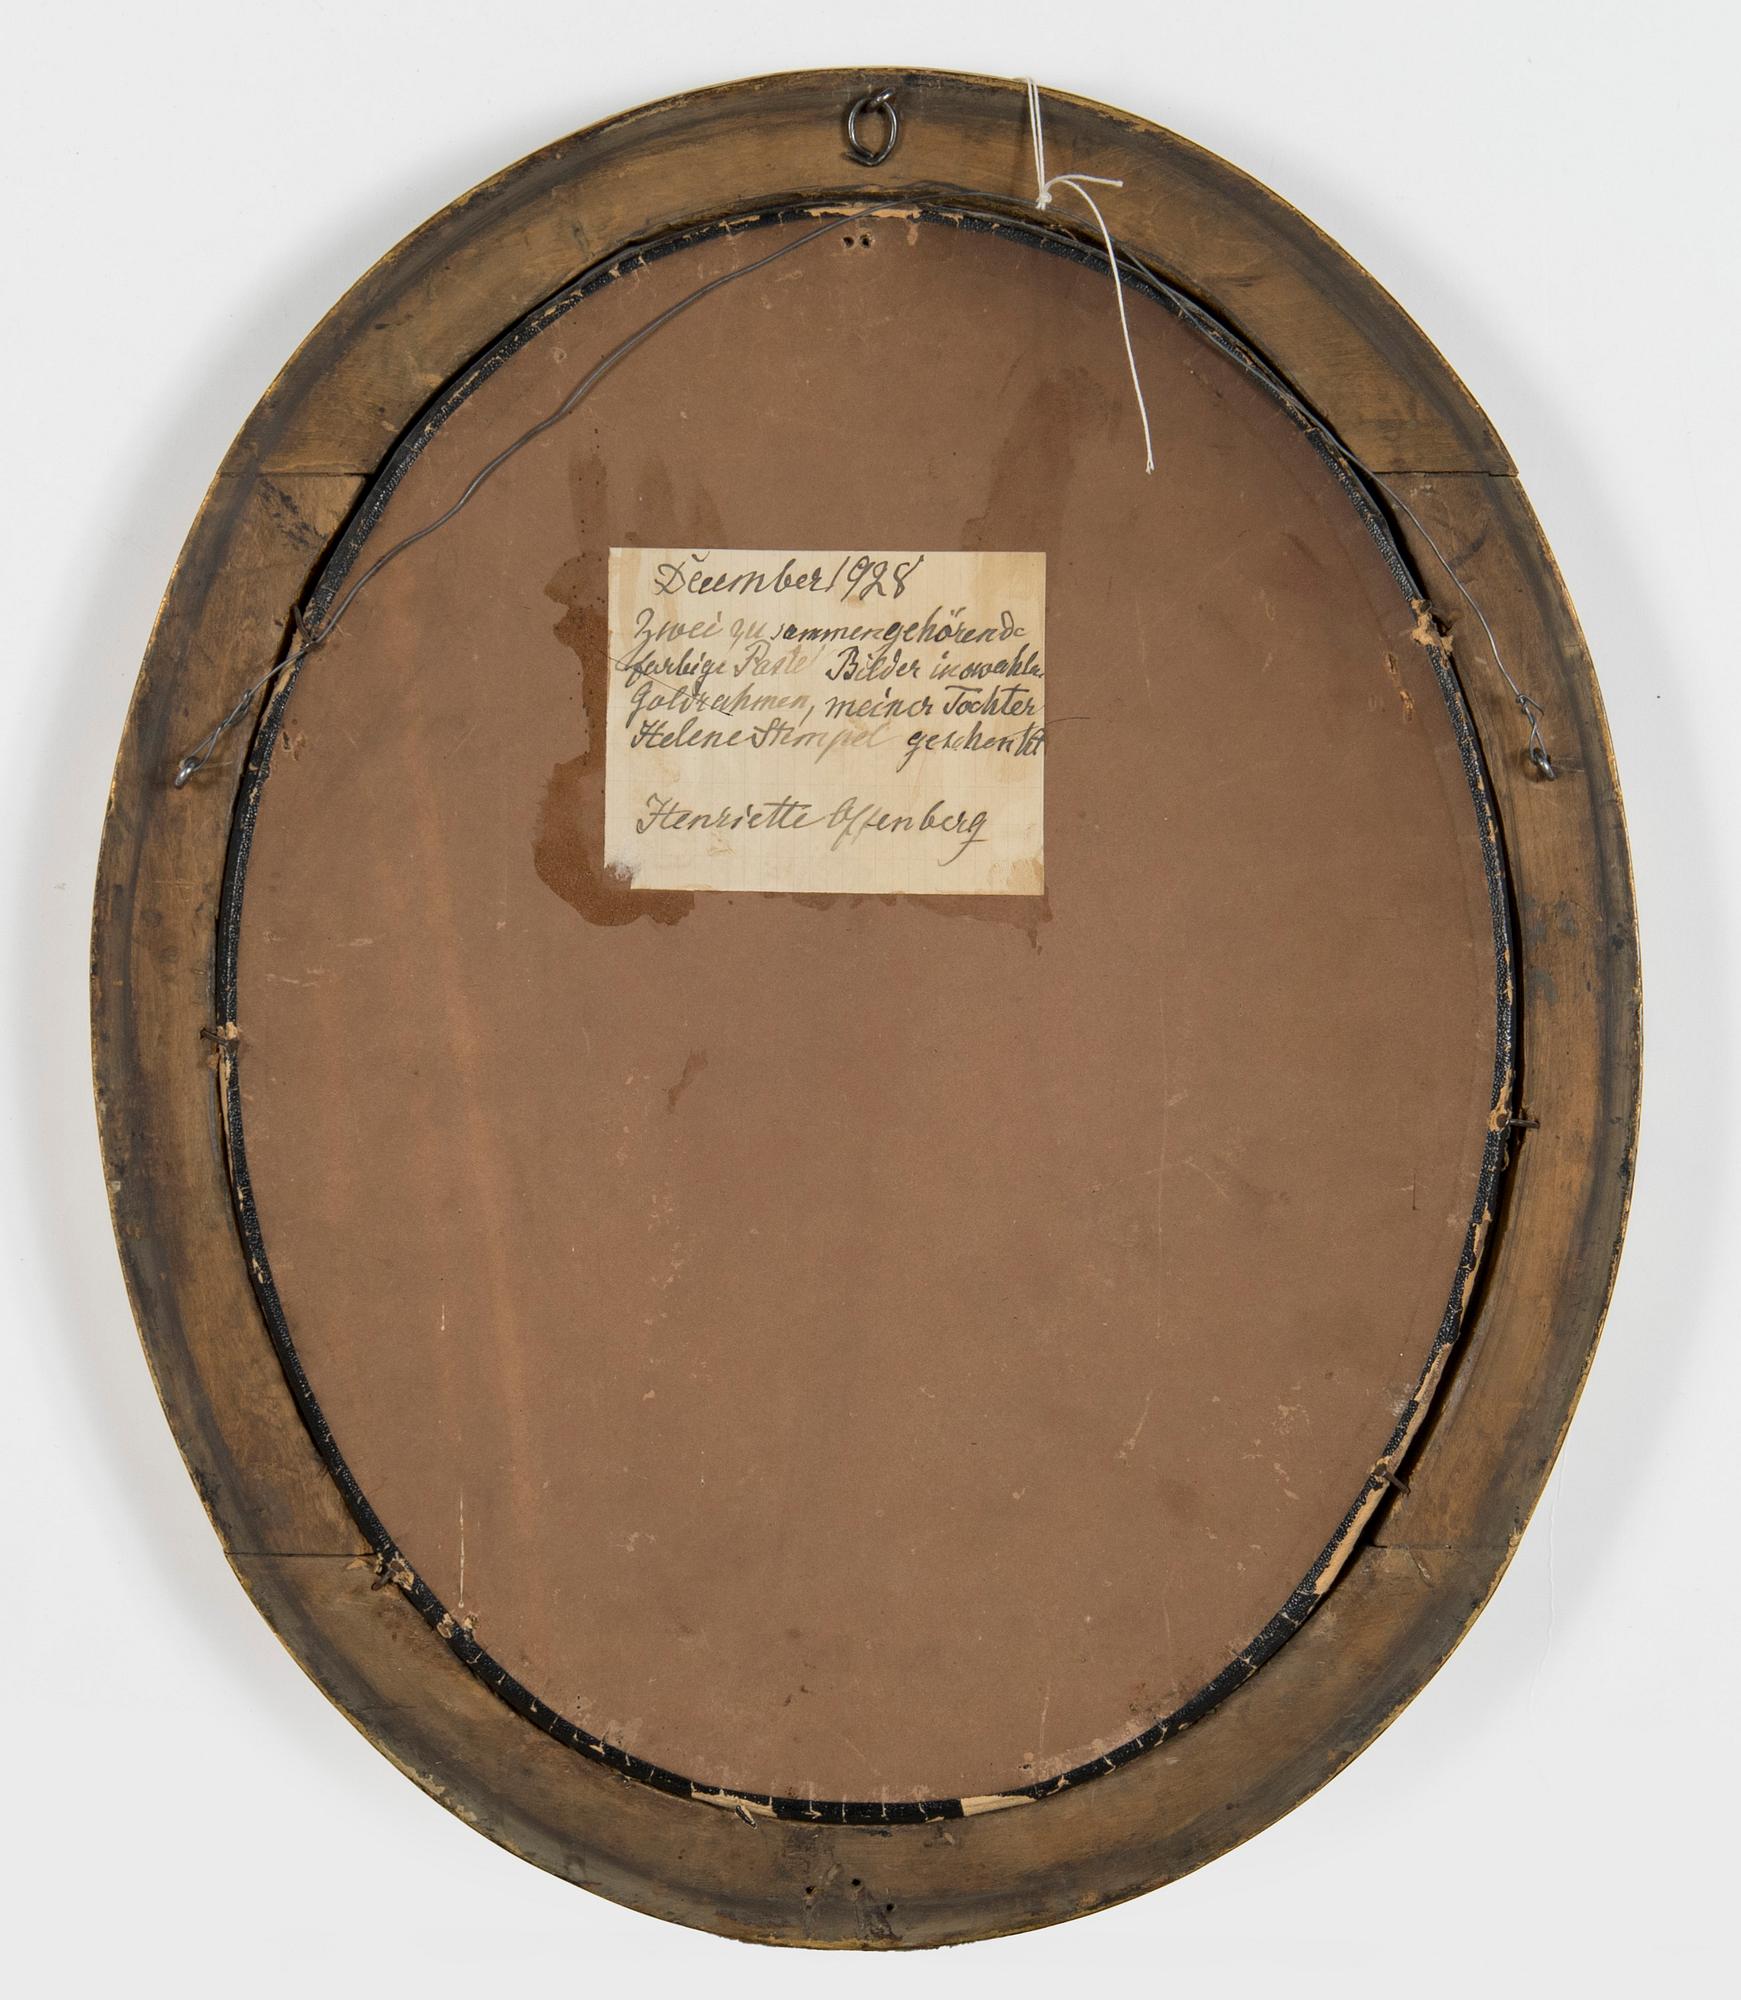 December 1928
Zwei zusammengehörende
farbige Pastel Bilder in
Goldrahmen, meiner Tochter
Helene Stempel geschenkt
Henriette Offenberg